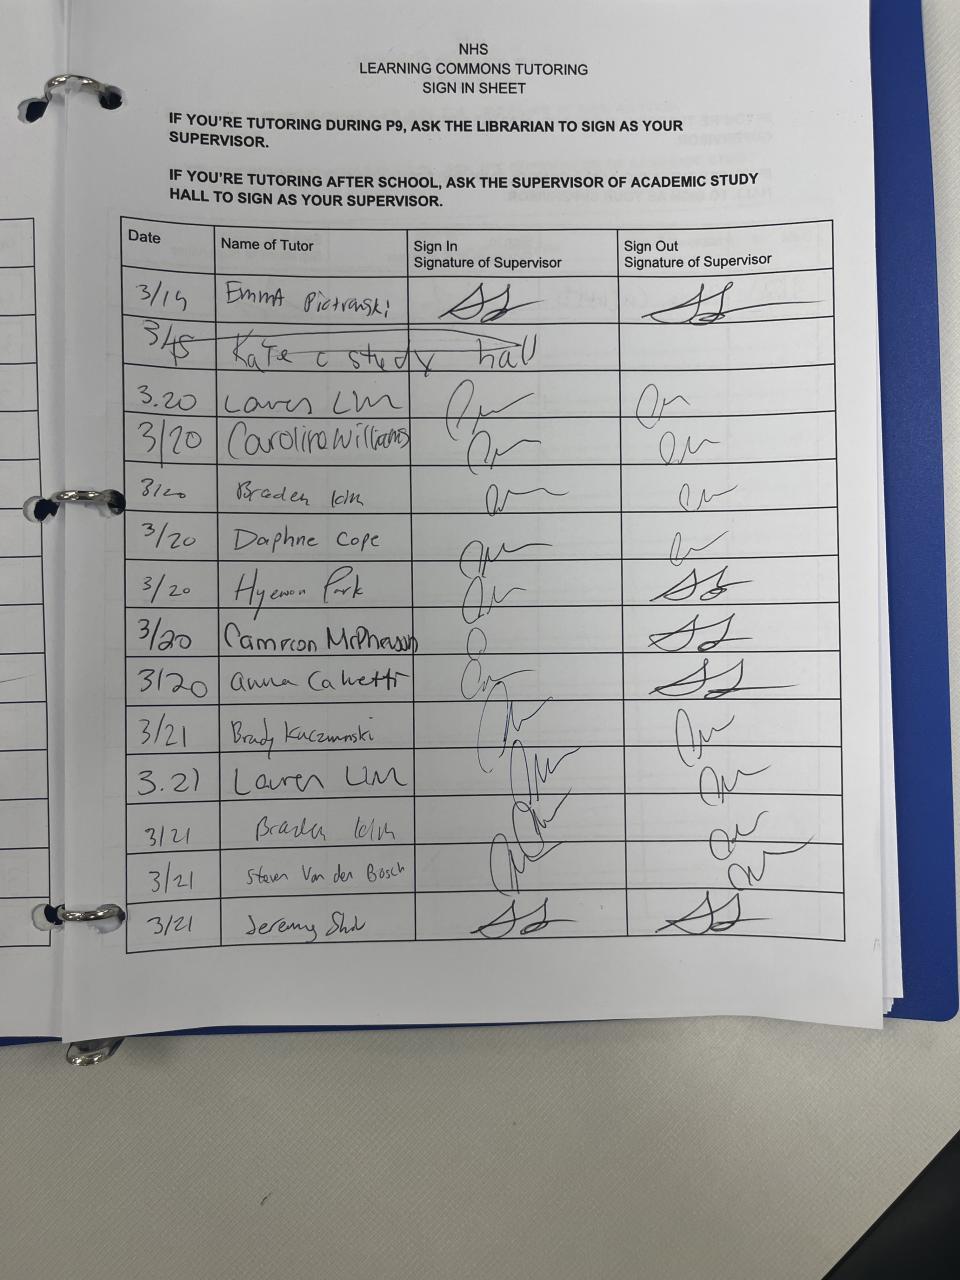 NHS
LEARNING COMMONS TUTORING
SIGN IN SHEET
IF YOU'RE TUTORING DURING P9, ASK THE LIBRARIAN TO SIGN AS YOUR
SUPERVISOR.
IF YOU'RE TUTORING AFTER SCHOOL, ASK THE SUPERVISOR OF ACADEMIC STUDY
HALL TO SIGN AS YOUR SUPERVISOR.
Date Name of Tutor Sign In Sign Out
Signature of Supervisor Signature of Supervisor
3/19 Emma Piotrowski
Kate c study hall
3.20 Lauren Lim
3/20 Caroline Williams
3/20 Braden Kim
3/20 Daphne Cope
3/20 Hyewon Park
3/20 Cameron McPherson
3/20 anna Calvetti
3/21 Brady Kuczynski
3.21 Lauren Lim
3/21 Braden Kim
3/21 Steven Van den Bosch
3/21 Jeremy